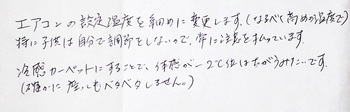 エアコンの設定温度を細めに変更します。(なるべく高めの温度で)
特に子供は自分で調節をしないので、常に注意を払っています。
冷感カーペットにすることで、体感が-2℃位は下がるみたいです。
(確かに座ってもベタベタしません。)